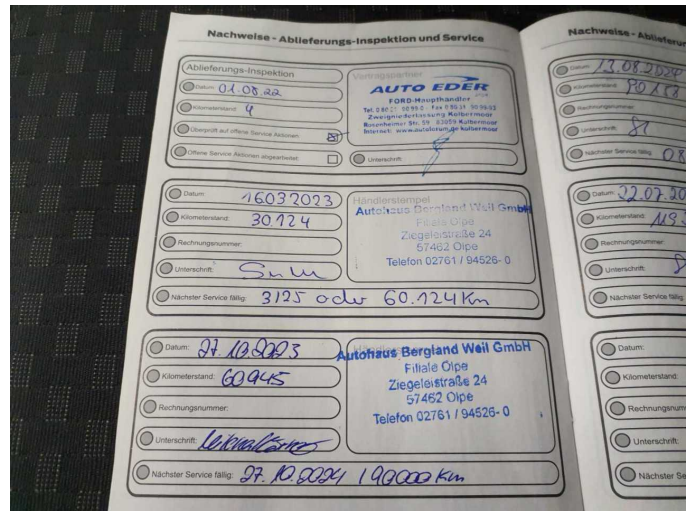 Nachweise - Ablieferungs-Inspektion und Service
Ablieferungs-Inspektion
Datum: 01.08.22
Kilometerstand: 4
Überprüft auf offene Service Aktionen:
Offene Service Aktionen abgearbeitet:
Vertragspartner
AUTO EDER
FORD-Haupthändler
Zweigniederlassung Kolbermoor
Rosenheimer Str. 59 83059 Kolbermoor
Unterschrift:
Datum: 16032023
Kilometerstand: 30.124
Rechnungsnummer:
Unterschrift:
Nächster Service fällig: 3125 oder 60.124 Km
Händlerstempel
Autohaus Bergland Weil GmbH
Filiale Olpe
Ziegeleistraße 24
57462 Olpe
Telefon 02761 / 94526- 0
Datum: 27.10.2023
Kilometerstand: 60945
Rechnungsnummer:
Unterschrift:
Nächster Service fällig: 27.10.2024 / 90000 Km
Autohaus Bergland Weil GmbH
Filiale Olpe
Ziegeleistraße 24
57462 Olpe
Telefon 02761 / 94526- 0
Nachweise - Ablieferun
Datum: 13.08.2024
Kilometerstand:
Rechnungsnummer:
Unterschrift:
Nächster Service fällig: 08
Datum: 22.07.20
Kilometerstand:
Rechnungsnummer:
Unterschrift:
Nächster Service fällig:
Datum:
Kilometerstand:
Rechnungsnumm
Unterschrift:
Nächster Se